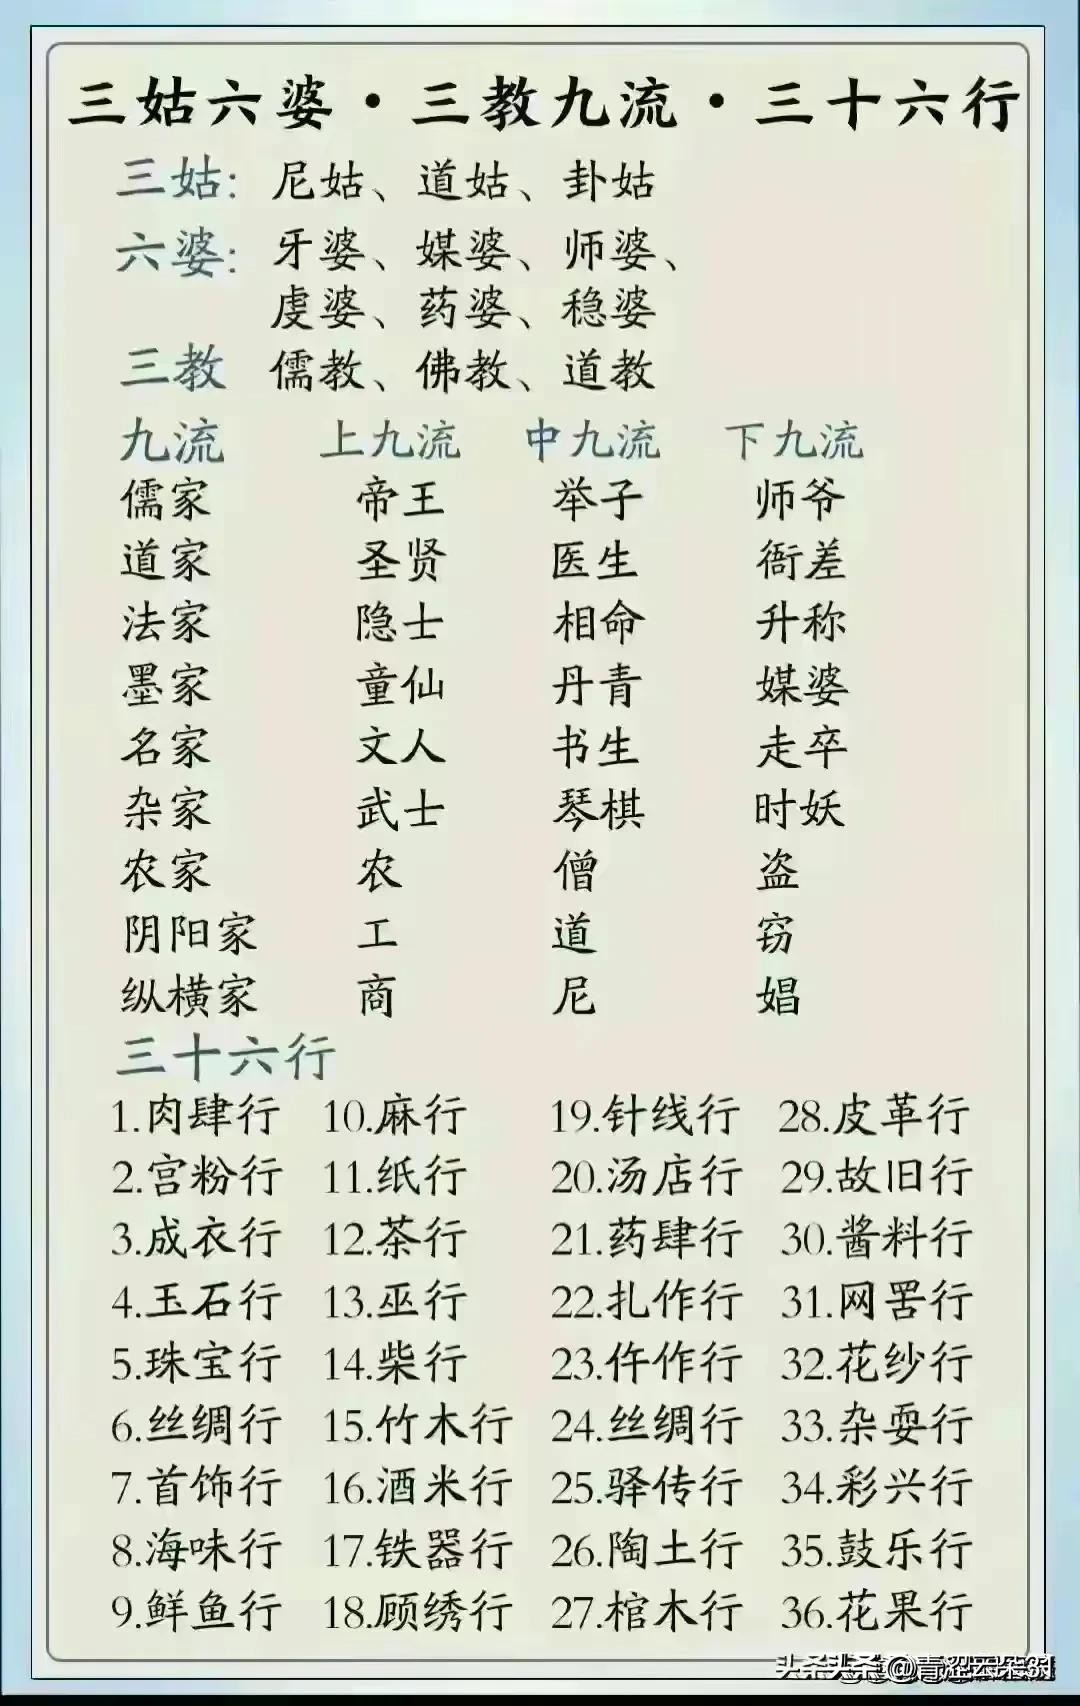 三姑六婆·三教九流·三十六行
三姑: 尼姑、道姑、卦姑
六婆: 牙婆、媒婆、师婆、
虔婆、药婆、稳婆
三教 儒教、佛教、道教
九流 上九流 中九流 下九流
儒家 帝王 举子 师爷
道家 圣贤 医生 衙差
法家 隐士 相命 升称
墨家 童仙 丹青 媒婆
名家 文人 书生 走卒
杂家 武士 琴棋 时妖
农家 农 僧 盗
阴阳家 工 道 窃
纵横家 商 尼 娼
三十六行
1.肉肆行 10.麻行 19.针线行 28.皮革行
2.宫粉行 11.纸行 20.汤店行 29.故旧行
3.成衣行 12.茶行 21.药肆行 30.酱料行
4.玉石行 13.巫行 22.扎作行 31.网罟行
5.珠宝行 14.柴行 23.仵作行 32.花纱行
6.丝绸行 15.竹木行 24.丝绸行 33.杂耍行
7.首饰行 16.酒米行 25.驿传行 34.彩兴行
8.海味行 17.铁器行 26.陶土行 35.鼓乐行
9.鲜鱼行 18.顾绣行 27.棺木行 36.花果行